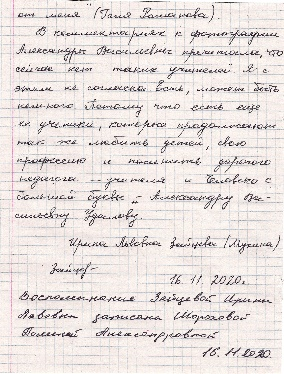 от меня" (Галя Романова).
В комментариях к фотографии
Александры Васильевны прочитала, что
сейчас нет таких учителей. Я с
этим не согласна. Есть, может быть
немного. Потому что есть ещё
её ученики, которые продолжают
так же любить детей, свою
профессию и помнить дорогого
педагога – учителя и Человека с
большой буквы – Александру Ва-
сильевну Удалову.
Ирина Львовна Зайцева
Зайцев-
16.11.2020.
Воспоминания Зайцевой Ирины
Львовны записала Морозовой
Полиной Александровной
16.11.2020